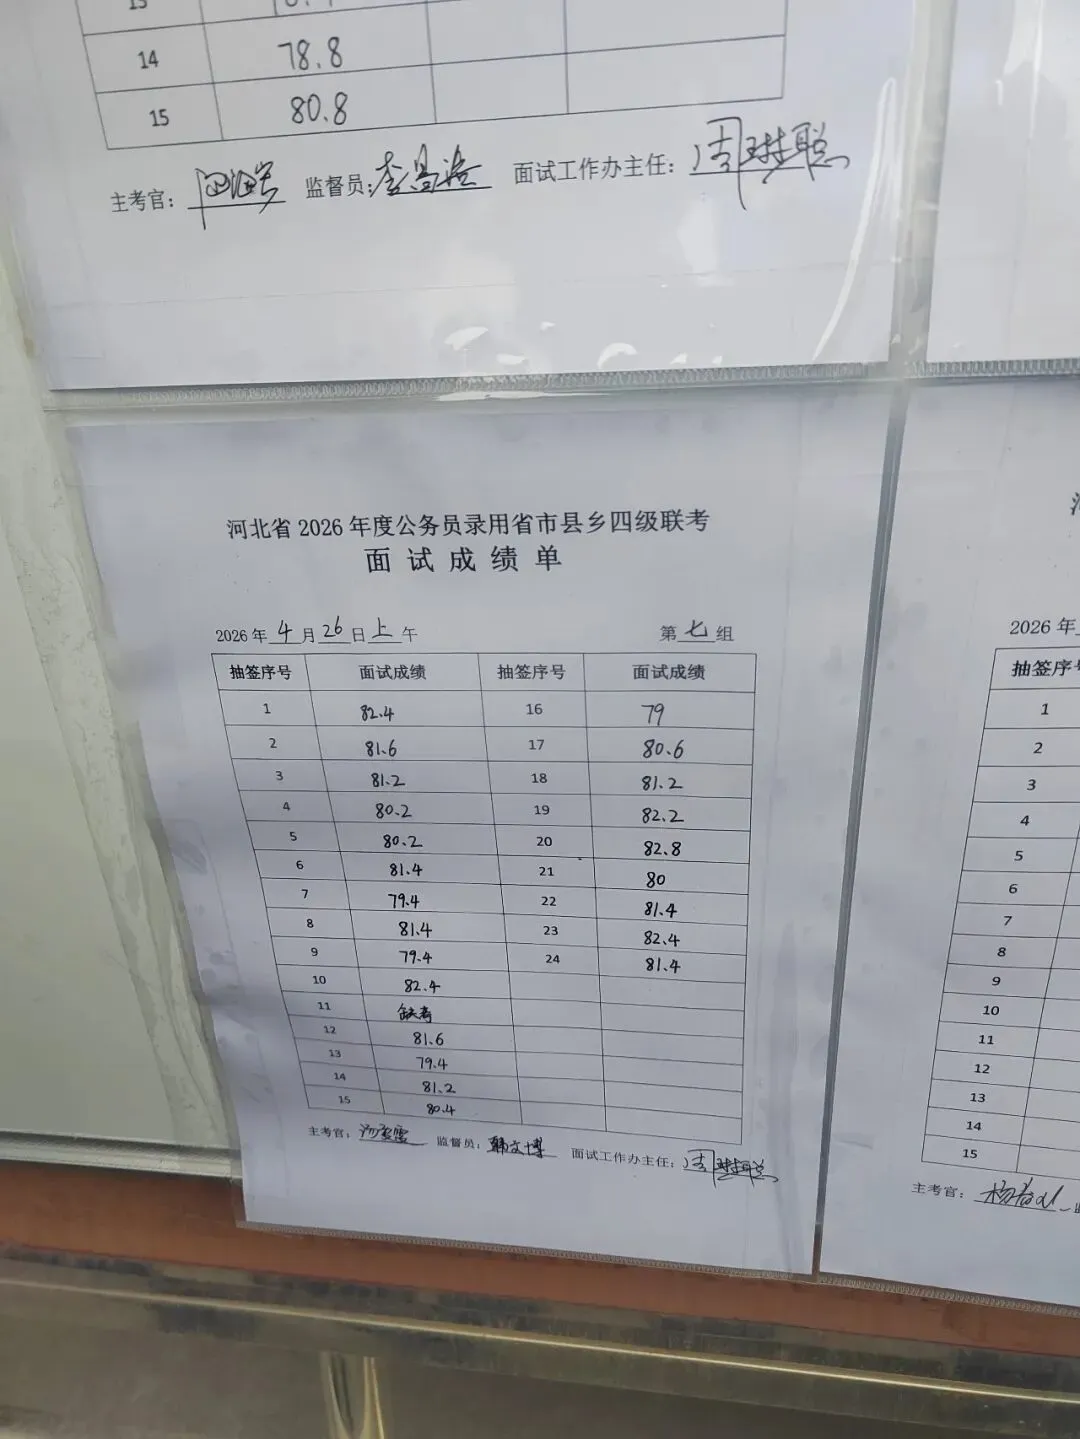 14 78.8
15 80.8
主考官： 监督员： 面试工作办主任：
河北省 2026 年度公务员录用省市县乡四级联考
面试成绩单
2026 年 4 月 26 日 上 午 第 七 组
抽签序号 面试成绩 抽签序号 面试成绩
1 82.4 16 79
2 81.6 17 80.6
3 81.2 18 81.2
4 80.2 19 82.2
5 80.2 20 82.8
6 81.4 21 80
7 79.4 22 81.4
8 81.4 23 82.4
9 79.4 24 81.4
10 82.4
11 缺考
12 81.6
13 79.4
14 81.2
15 80.4
主考官： 监督员：韩文博 面试工作办主任：
2026 年
抽签序号
1
2
3
4
5
6
7
8
9
10
11
12
13
14
15
主考官：